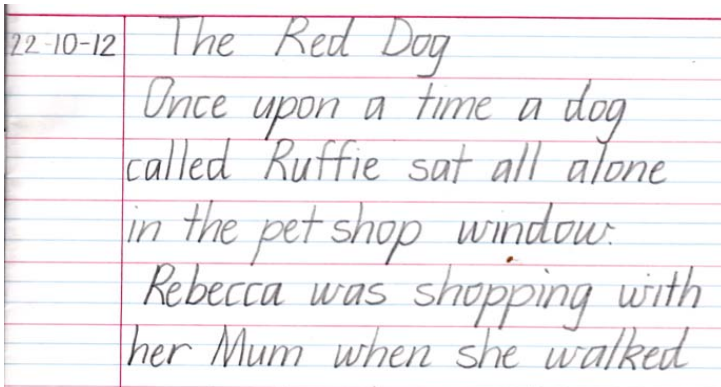 22-10-12 The Red Dog
Once upon a time a dog
called Ruffie sat all alone
in the pet shop window.
Rebecca was shopping with
her Mum when she walked